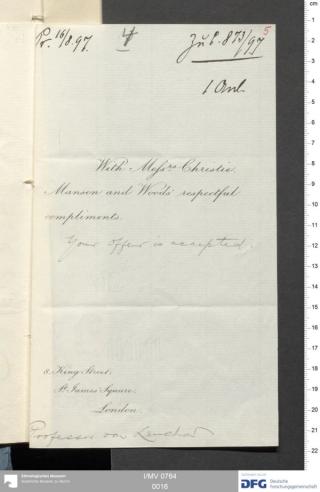 Pr. 16/8. 97.
4
5
zu E. 873/97
1 Anl.
With Messrs Christie,
Manson and Woods' respectful
compliments.
Your offer is accepted.
8 King Street,
St James Square,
London.
Professor von Luschan
cm
1
2
3
4
5
6
7
8
9
10
11
12
13
14
15
16
17
18
19
20
21
22
Ethnologisches Museum
Staatliche Museen zu Berlin
I/MV 0764
0016
DFG
Deutsche
Forschungsgemeinschaft